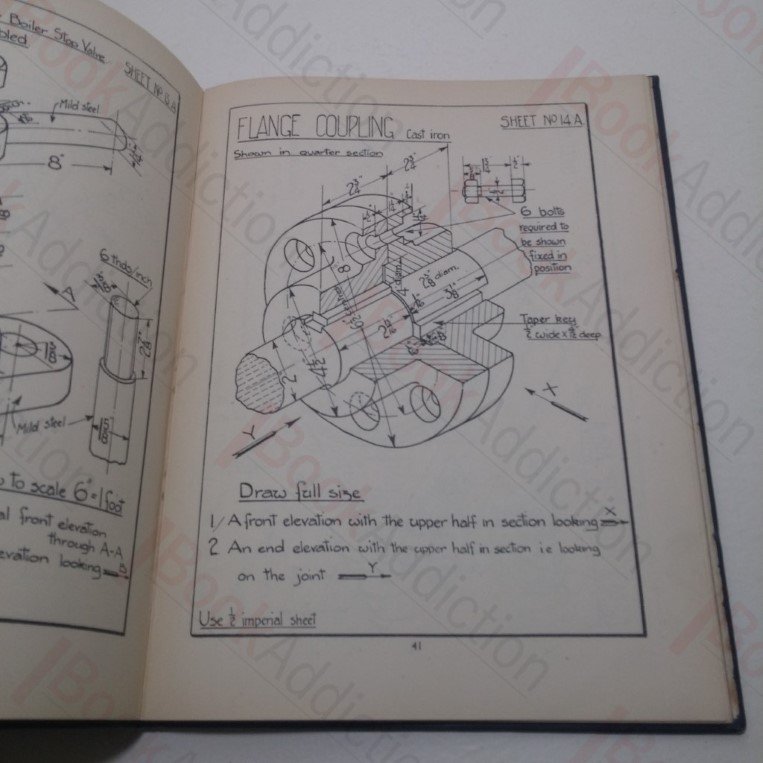 Boiler Stop Valve
SHEET No 13 A
Mild steel
8"
6 thds/inch
A
Mild steel
to scale 6" = 1 foot
front elevation
through A-A
elevation looking B
FLANGE COUPLING Cast iron
SHEET No 14 A
Shown in quarter section
2 3/4"
2 3/4"
6 bolts
required to
be shown
fixed in
position
8
4" diam.
2 3/8" diam.
3 1/8"
Taper key
1/2" wide x deep
2
Y
X
Draw full size
1/ A front elevation with the upper half in section looking X
2 An end elevation with the upper half in section i.e looking
on the joint Y
Use 1/2 imperial sheet
41
BookAddiction